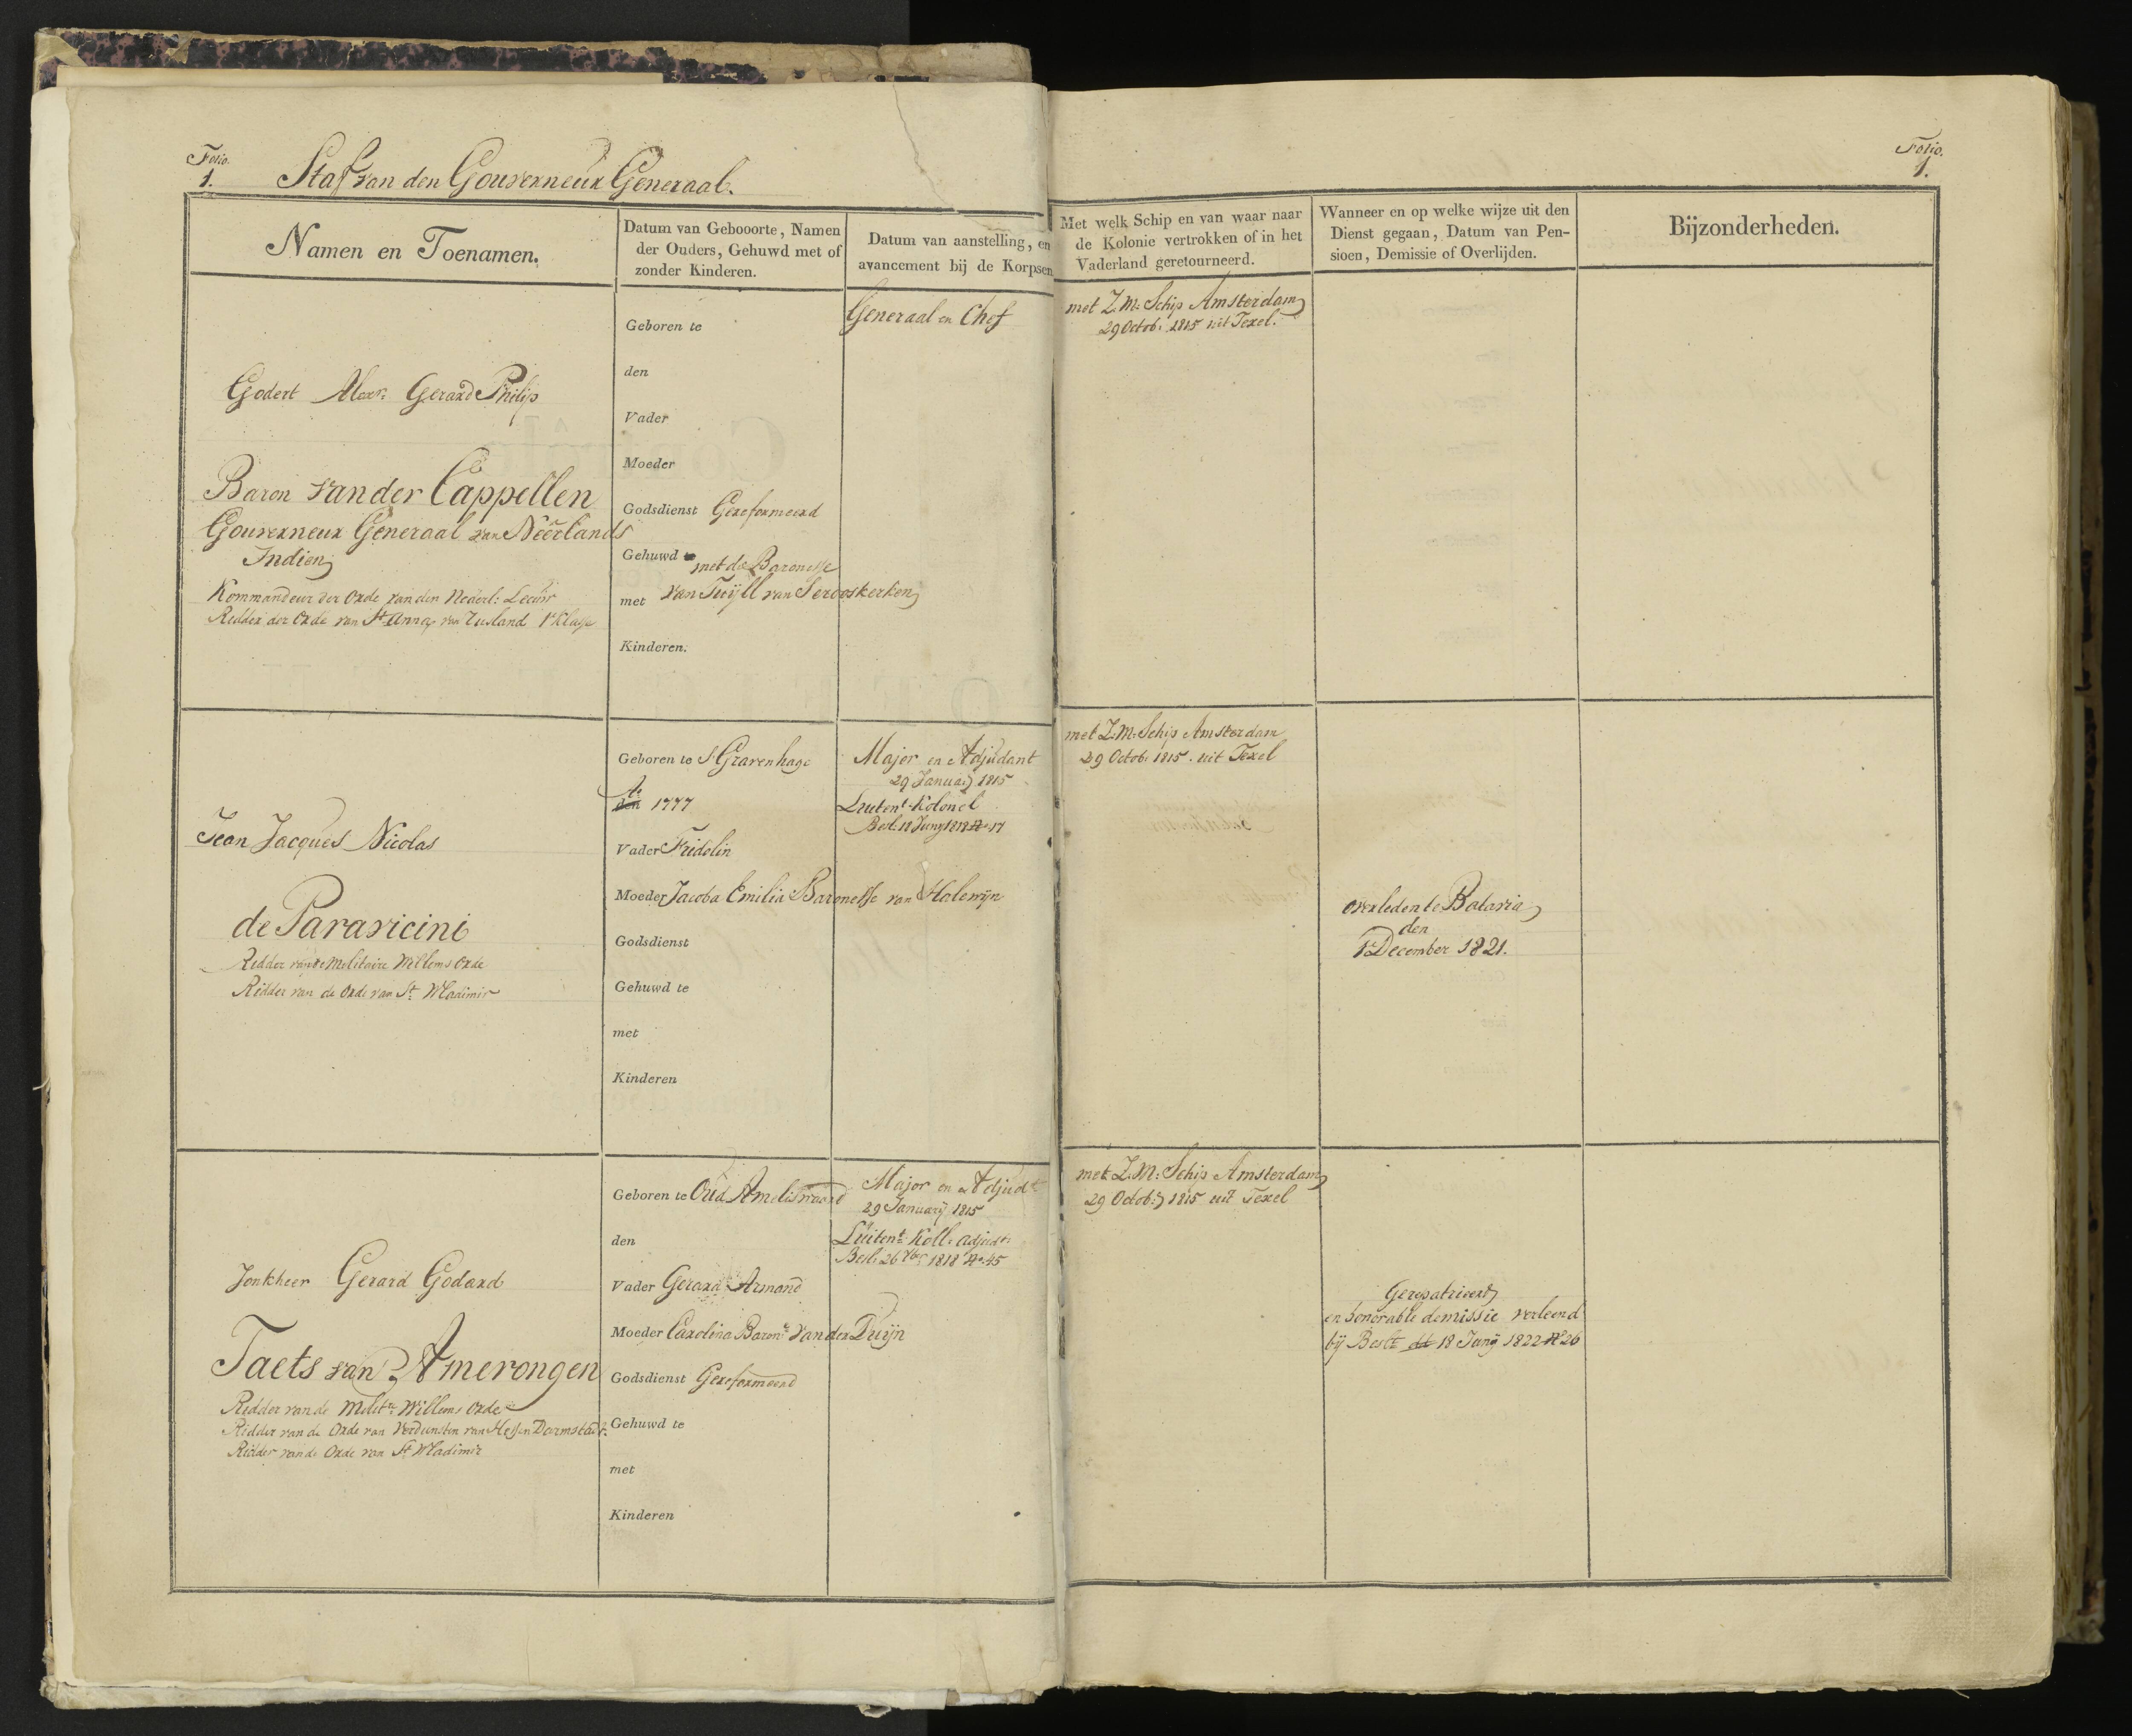 Folio.
1.
Staf van den Gouverneur Generaal.
Namen en Toenamen.
Datum van Gebooorte, Namen
der Ouders, Gehuwd met of
zonder Kinderen.
Datum van aanstelling, en
avancement bij de Korpsen
Met welk Schip en van waar naar
de Kolonie vertrokken of in het
Vaderland geretourneerd.
Wanneer en op welke wijze uit den
Dienst gegaan, Datum van Pen-
sioen, Demissie of Overlijden.
Bijzonderheden.
Folio.
1.
Godert Alexr. Gerard Philip
Baron van der Cappellen
Gouverneur Generaal van Neêrlands
Indien
Kommandeur der Orde van den Nederl: Leeuw
Ridder der Orde van St. Anna van Rusland 1e Klasse
Geboren te
den
Vader
Moeder
Godsdienst Gereformeerd
Gehuwd met de Baronesse
met van Tuÿll van Serooskerken
Kinderen.
Generaal en Chef
met Z.M. Schip Amsterdam
29 Octob: 1815 uit Texel.
Jean Jacques Nicolas
de Paravicini
Ridder van de Militaire Willems Orde
Ridder van de Orde van St. Wladimir
Geboren te S'Gravenhage
den 1777
Vader Fridolin
Moeder Jacoba Emilia Baronesse van Halewijn
Godsdienst
Gehuwd te
met
Kinderen
Major en Adjudant
29 Januarij 1815
Luitent. Kolonel
Besl. 18 Junij 1818 No. 17
met Z.M. Schip Amsterdam
29 Octob: 1815. uit Texel
overleden te Batavia
den
1e December 1821.
Jonkheer Gerard Godard
Taets van Amerongen
Ridder van de Militre. Willems Orde
Ridder van de Orde van Verdiensten van Hessen Darmstadt.
Ridder van de Orde van St. Wladimir
Geboren te Oud Ameliswaard
den
Vader Gerard Armand
Moeder Carolina Barone. van der Duijn
Godsdienst Gereformeerd
Gehuwd te
met
Kinderen
Major en Adjudt
29 Januarij 1815
Luitent. Koll. Adjudt.
Besl. 26 1818 No. 45
met Z.M. Schip Amsterdam
29 Octob: 1815 uit Texel
Gerepatrieerd
en honorable demissie verleend
bij Beslt dd 18 Junij 1822 No 26